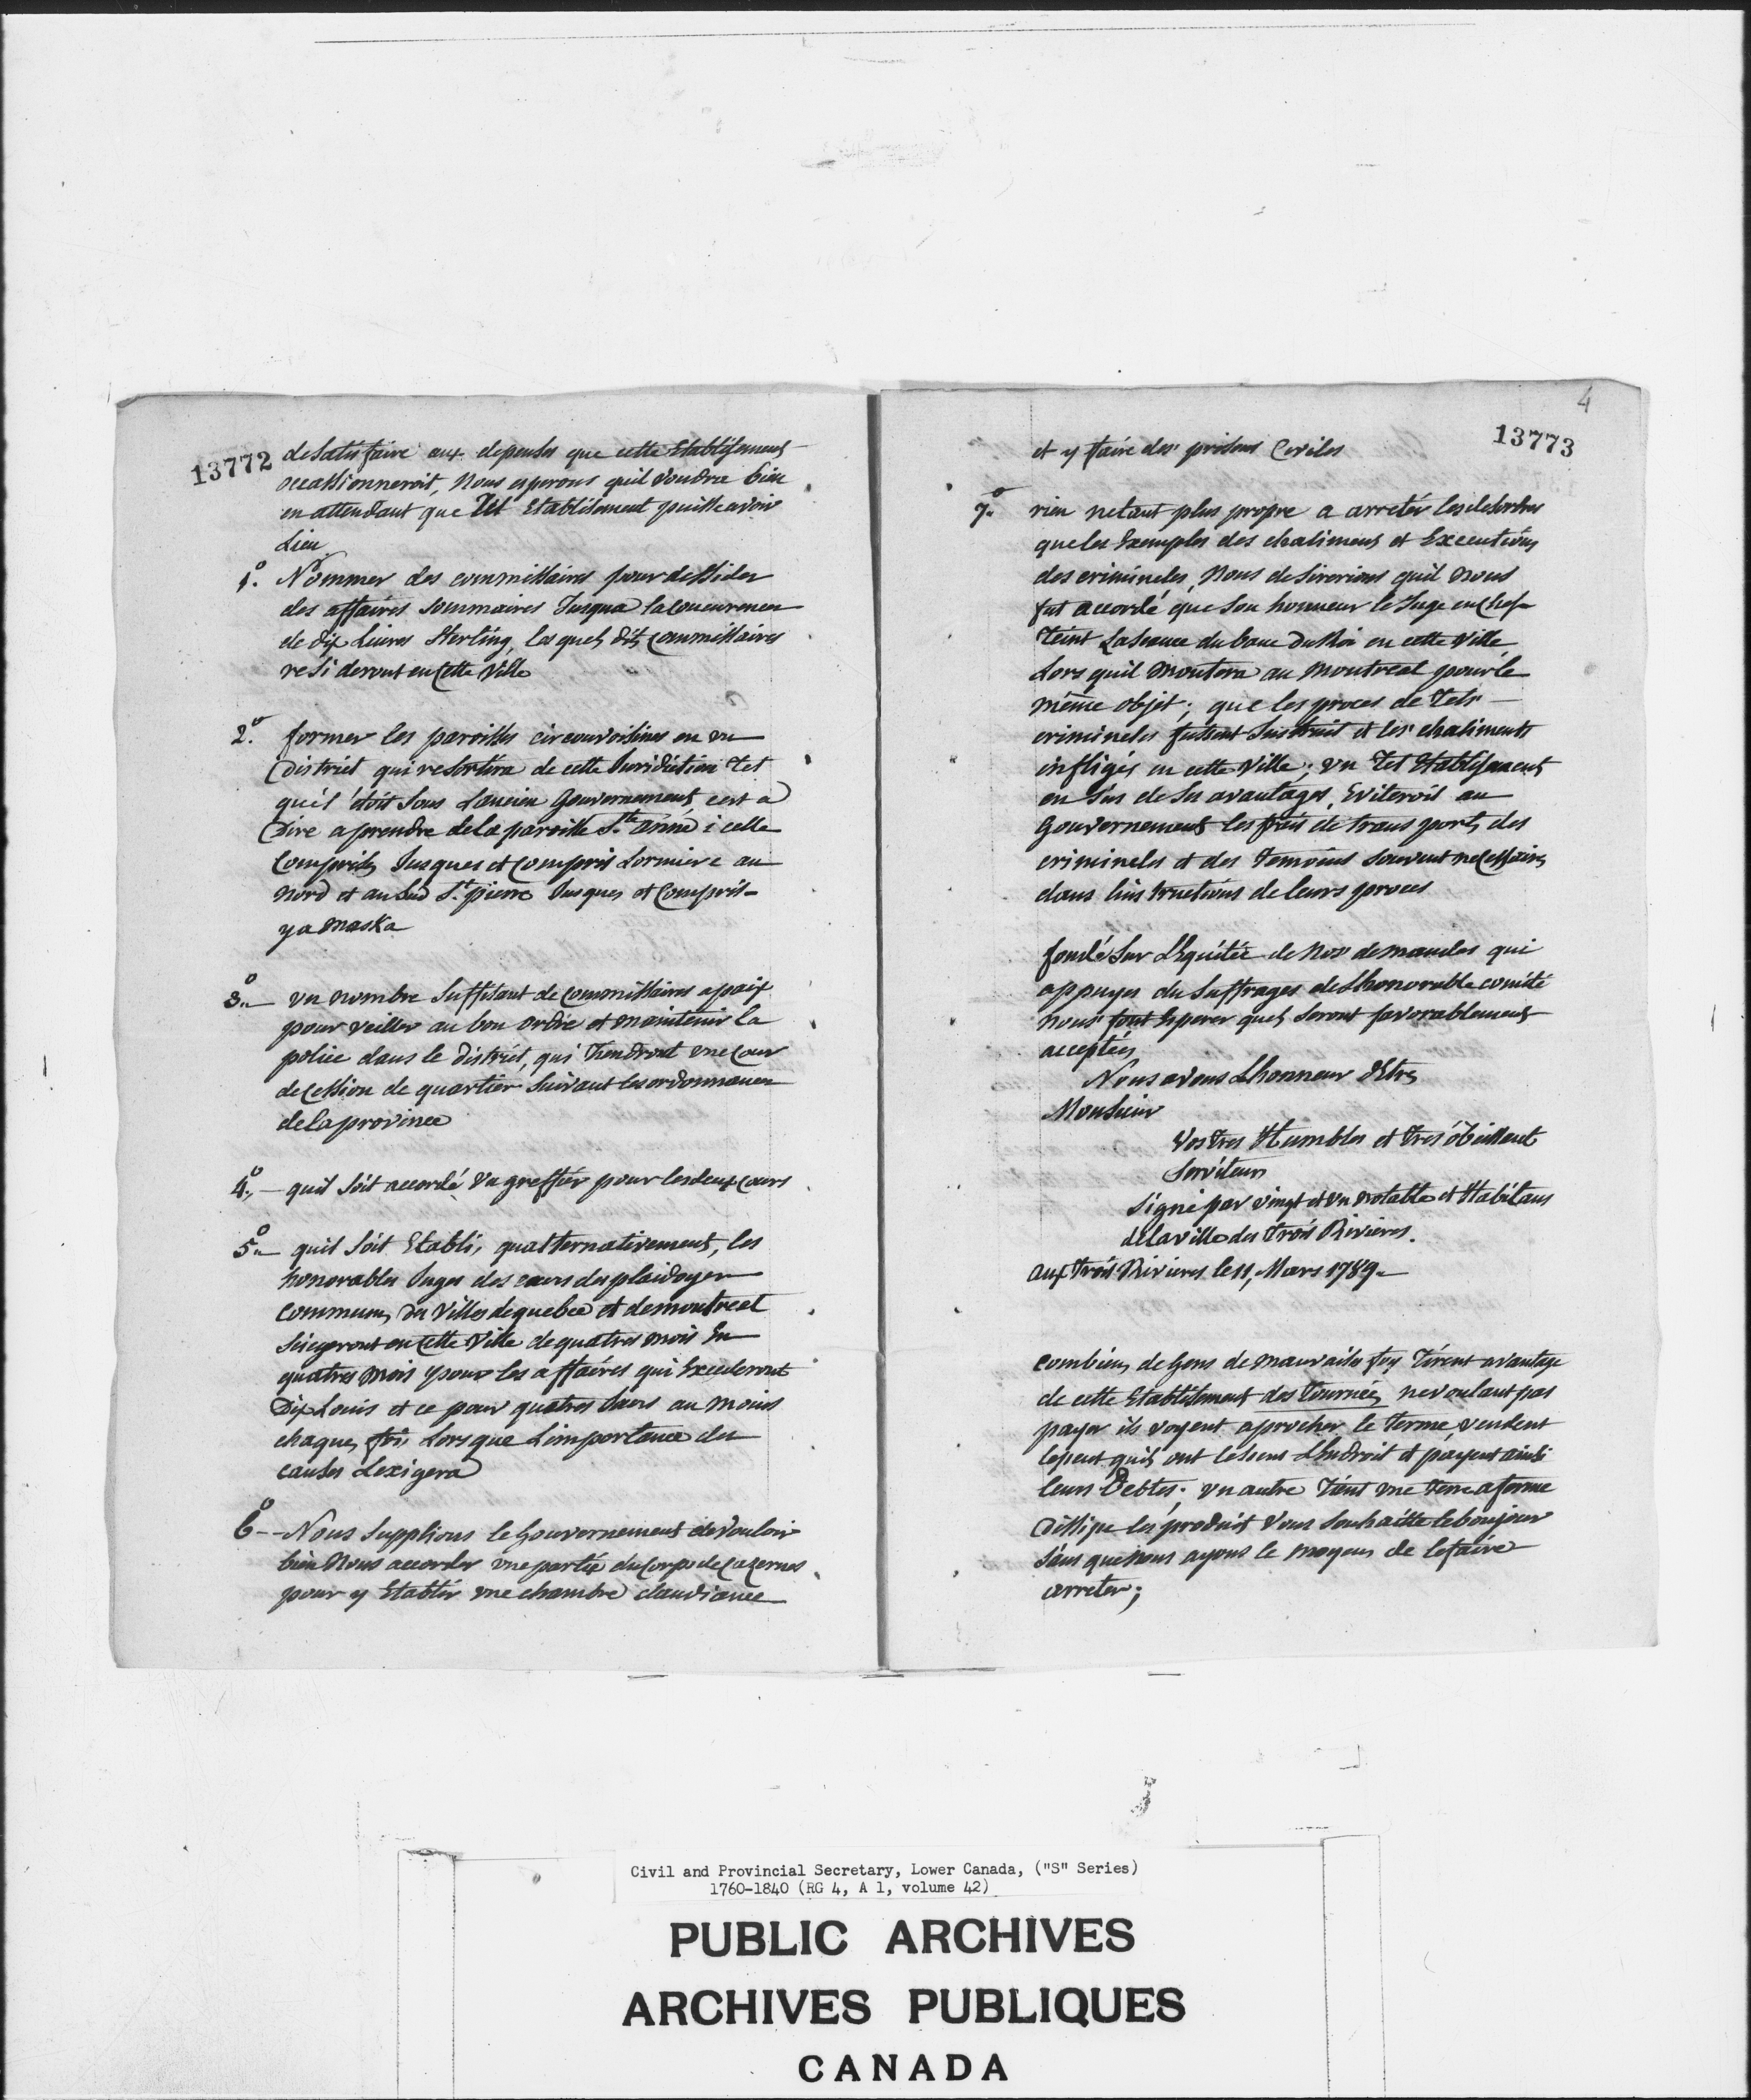 13772
de satisfaire aux depenses que cette Etablissement
occassionneroit, Nous esperons quil voudra bien
en attendant que Tel Etablisement puisse avoir
Lieu
1.o Nommer des commissaires pour dessider
des affaires sommaires Jusqua la concurence
de dix Livres Sterling, lesquels dits Commissaires
resideront en Cette Ville
2.o former les paroisses circonvoisines en un
District qui resortira de cette Juridiction tel
qu'il étoit sous L'ancien Gouvernement, cest a
Dire a prendre de la paroisse S.te anne i celle
Comprise Jusques et Compris Lormiere au
Nord et au Sud S.t pierre Jusques et Compris
yamaska
3.o un nombre suffisant de Commissaires a paix
pour veiller au bon ordre et maintenir la
police dans le district, qui Tiendront une Cour
de Cession de quartier suivant les ordonnances
de la province
4.o — quil soit accordé Un greffier pour les deux Cours
5.o quil soit Etabli, qualternativement, les
honorables Juges des cours des plaidoyer
Communs des Villes de quebec et de montreal
Seigeront en Cette Ville de quatres mois En
quatres mois pour les affaires qui Excederont
Dix Louis et ce pour quatres Jours au moins
chaques fois Lorsque L'importance des
causes L'exigera
6.o -- Nous supplions le Gouvernement de vouloir
bien nous accorder une partie du Corps de Cazernes
pour y Etablir une chambre d'audiance
4
13773
et y faire des prisons Civiles
7.o rien netant plus propre a arreter les desordres
que les Exemples des chatiments et Executions
des crimineles, Nous desirerions quil nous
fut accordé que Son honneur le Juge en Chef
teint La seance du banc du Roi en cette Ville
Lors quil montera au Montreal pour le
même objet; que les proces de Tels —
crimineles fussent Instruit et les chatiments
infligés en cette Ville; un Tel Etablissement
en Sus de ses avantages, Eviteroit au
Gouvernement les frais de transports des
crimineles et des Temoins souvent necessaires
dans l'instructions de leurs proces
fondé Sur L'Equitée de Nos demandes qui
appuyes du suffrages de L'honorable comité
nous font Esperer quels seront favorablement
acceptées
Nous avons L'honneur d'Etre
Monsieur
Vos tres Humbles et tres obeissant
Serviteurs
signé par vingt et un notable et Habitans
de la ville des Trois Rivieres.
aux Trois Rivieres le 11, Mars 1789.
Combiens de Gens de mauvaises foy Tirent avantage
de cette Etablisement des Tournées ne voulant pas
payer ils voyent aprocher le terme, vendent
le peut quils ont lessent L'Endroit et payent ainsi
leurs Debtes; un autre Tient une terre a ferme
Dissipe les produits Vous souhaitte le bonjour
Sans que nous ayons le moyens de le faire
arreter;
Civil and Provincial Secretary, Lower Canada, ("S" Series)
1760-1840 (RG 4, A 1, volume 42)
PUBLIC ARCHIVES
ARCHIVES PUBLIQUES
CANADA